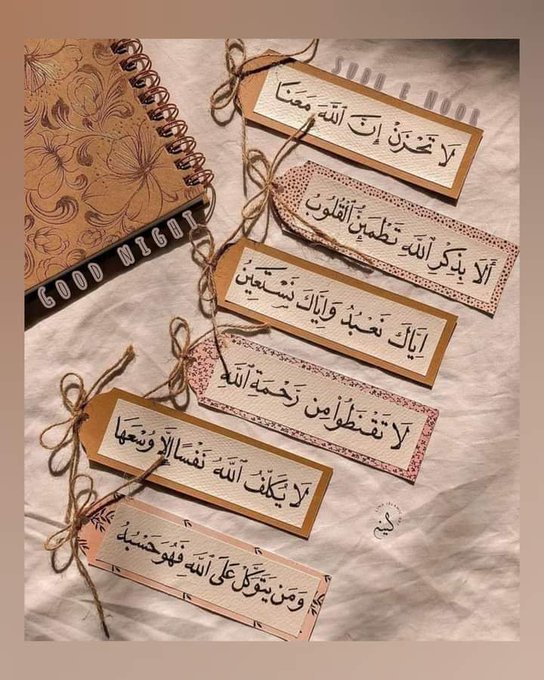 SUBH E NOOR
لَا تَحْزَنْ إِنَّ اللَّهَ مَعَنَا
أَلَا بِذِكْرِ اللَّهِ تَطْمَئِنُّ الْقُلُوبُ
GOOD NIGHT
اِيَّاكَ نَعْبُدُ وَاِيَّاكَ نَسْتَعِيْنُ
لَا تَقْنَطُوْا مِن رَّحْمَةِ اللَّهِ
لَا يُكَلِّفُ اللَّهُ نَفْسًا إِلَّا وُسْعَهَا
وَمَنْ يَتَوَكَّلْ عَلَى اللَّهِ فَهُوَ حَسْبُهُ